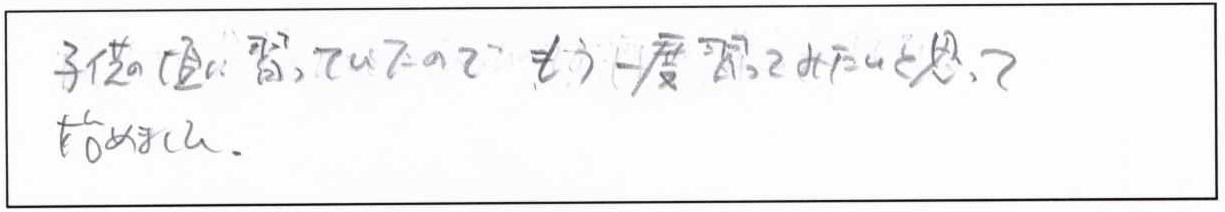 子供の頃に習っていたので もう一度習ってみたいと思って
始めました.